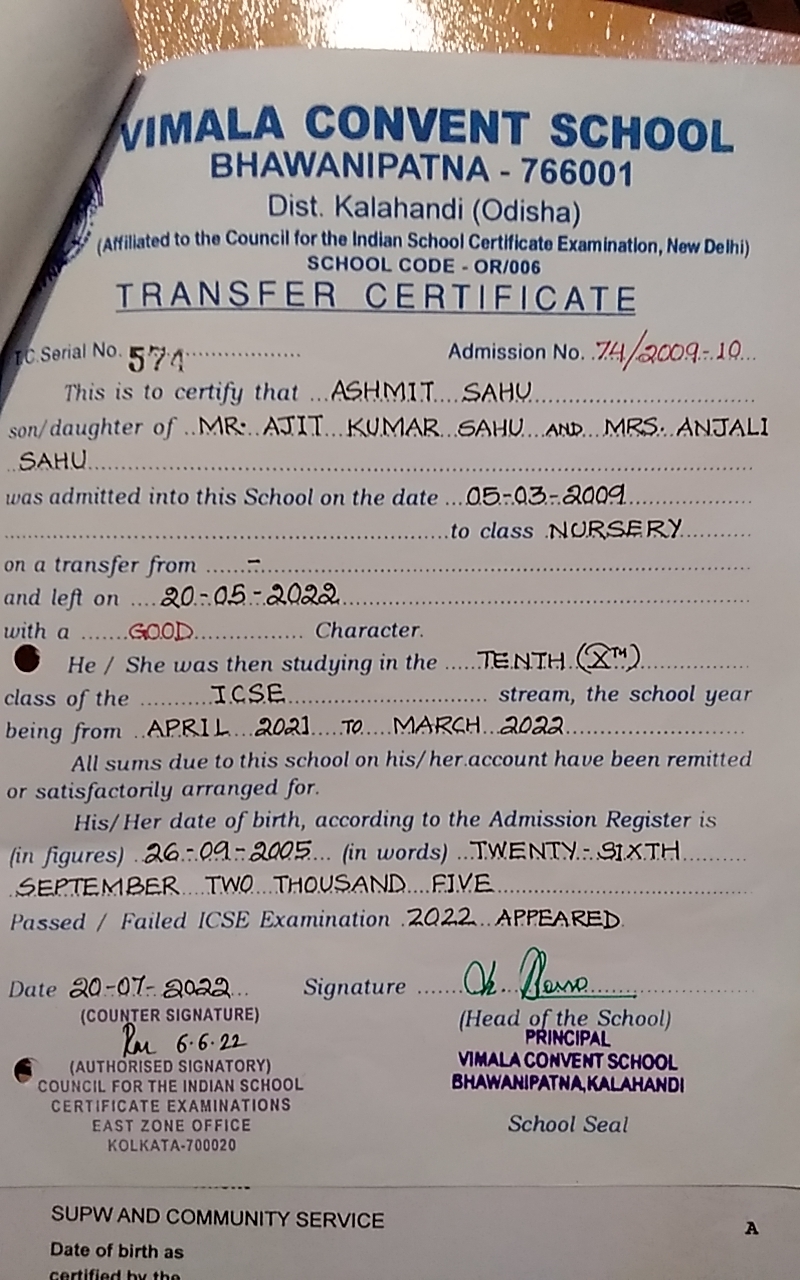 VIMALA CONVENT SCHOOL
BHAWANIPATNA - 766001
Dist. Kalahandi (Odisha)
(Affiliated to the Council for the Indian School Certificate Examination, New Delhi)
SCHOOL CODE - OR/006
TRANSFER CERTIFICATE
T.C. Serial No. 574 Admission No. 74/2009-10
This is to certify that ASHMIT SAHU
son/daughter of MR. AJIT KUMAR SAHU AND MRS. ANJALI
SAHU
was admitted into this School on the date 05-03-2009
to class NURSERY
on a transfer from -
and left on 20-05-2022
with a GOOD Character.
He / She was then studying in the TENTH (XTH)
class of the ICSE stream, the school year
being from APRIL 2021 TO MARCH 2022
All sums due to this school on his/her account have been remitted
or satisfactorily arranged for.
His/Her date of birth, according to the Admission Register is
(in figures) 26-09-2005 (in words) TWENTY-SIXTH
SEPTEMBER TWO THOUSAND FIVE
Passed / Failed ICSE Examination 2022 APPEARED
Date 20-07-2022 Signature
(COUNTER SIGNATURE) (Head of the School)
6.6.22 PRINCIPAL
(AUTHORISED SIGNATORY) VIMALA CONVENT SCHOOL
COUNCIL FOR THE INDIAN SCHOOL BHAWANIPATNA, KALAHANDI
CERTIFICATE EXAMINATIONS
EAST ZONE OFFICE School Seal
KOLKATA-700020
SUPW AND COMMUNITY SERVICE A
Date of birth as
certified by the